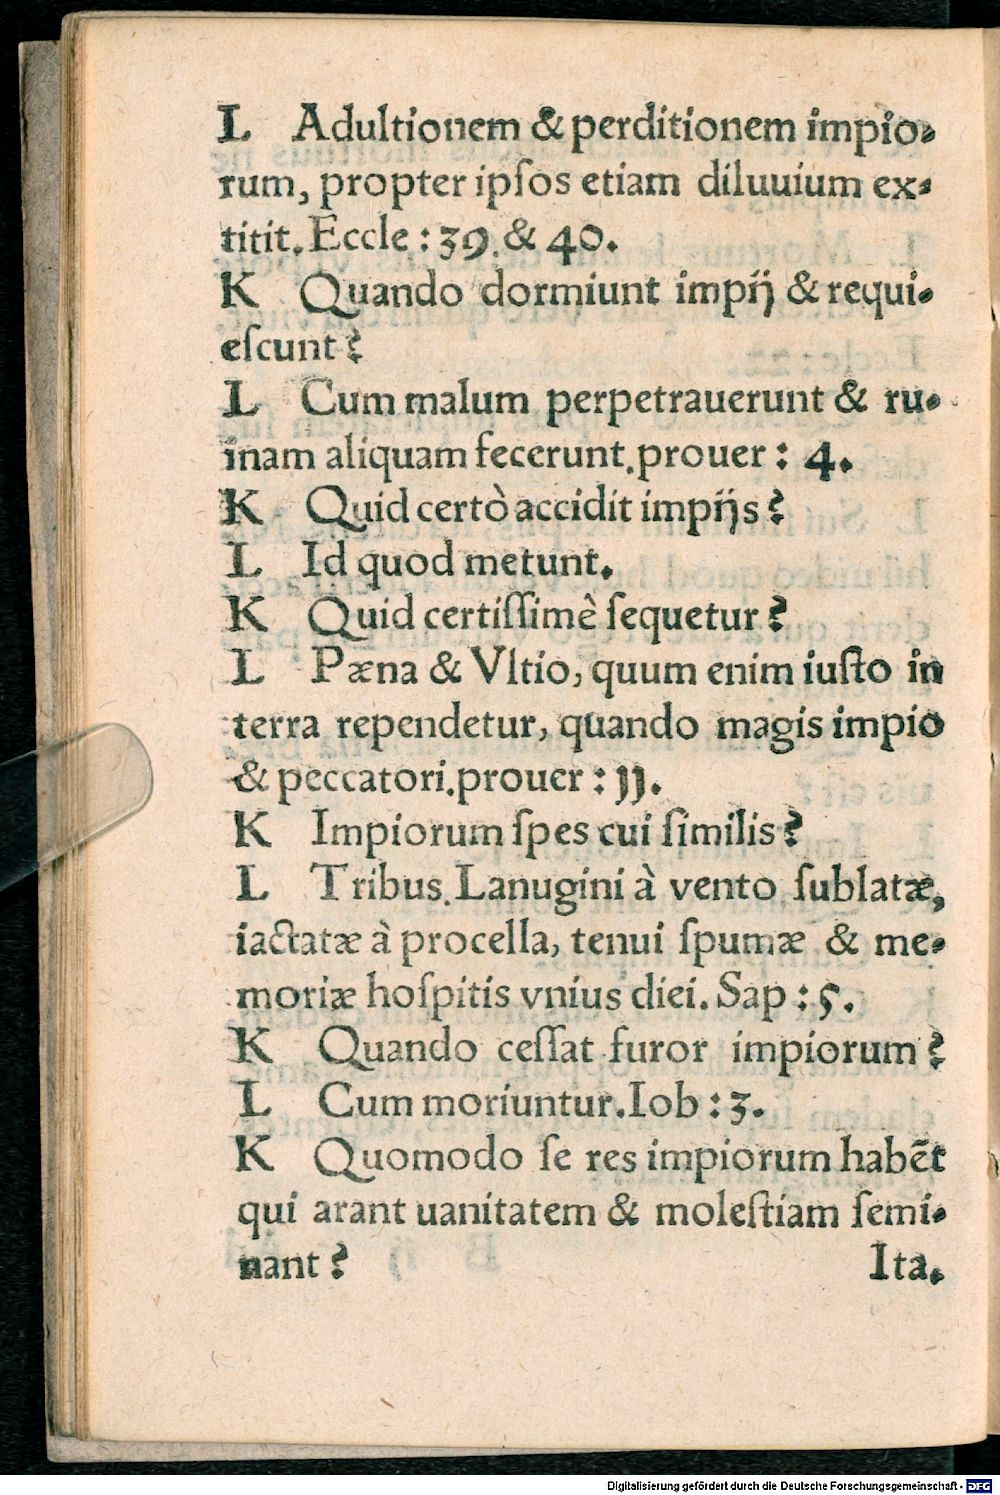 L Adultionem & perditionem impio⸗
rum, propter ipſos etiam diluuium ex⸗
titit. Eccle : 39. & 40.
K Quando dormiunt impij & requi⸗
eſcunt ?
L Cum malum perpetrauerunt & ru⸗
inam aliquam fecerunt. prouer : 4.
K Quid certò accidit impijs ?
L Id quod metunt.
K Quid certiſſimè ſequetur ?
L Pæna & Vltio, quum enim iuſto in
terra rependetur, quando magis impio
& peccatori. prouer : 11.
K Impiorum ſpes cui ſimilis ?
L Tribus. Lanugini à vento ſublatæ,
iactatæ à procella, tenui ſpumæ & me⸗
moriæ hoſpitis vnius diei. Sap : 5.
K Quando ceſſat furor impiorum ?
L Cum moriuntur. Iob : 3.
K Quomodo ſe res impiorum habēt
qui arant uanitatem & moleſtiam ſemi⸗
nant ? Ita.
Digitalisierung gefördert durch die Deutsche Forschungsgemeinschaft - DFG